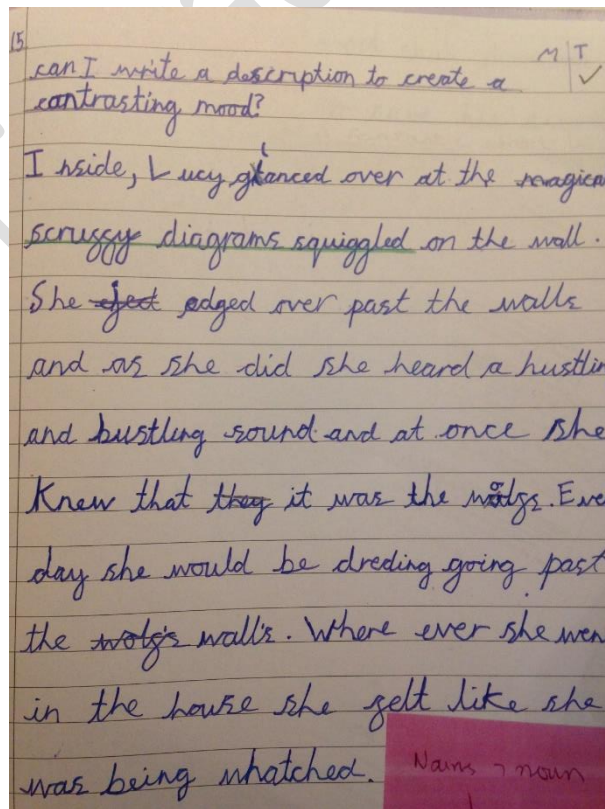 15
M | T ✓
can I write a description to create a
contrasting mood?
Inside, Lucy glanced over at the magica
scruggy diagrams squiggled on the wall.
She edged over past the walls
and as she did she heard a hustlin
and bustling sound and at once she
knew that they it was the wolfs. Eve
day she would be dreding going past
the wolf's wall's. Where ever she wen
in the house she felt like she
was being whatched.
Nouns → noun